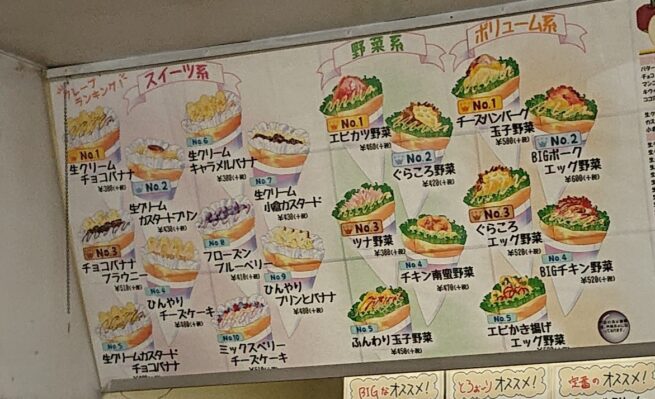 クレープ
ランキング!
スイーツ系
No.1
生クリーム
チョコバナナ
No.2
生クリーム
カスタードプリン
¥430(+税)
No.3
チョコバナナ
ブラウニー
¥510(+税)
No.4
ひんやり
チーズケーキ
No.5
生クリームカスタード
チョコバナナ
No.6
生クリーム
キャラメルバナナ
¥380(+税)
No.7
生クリーム
小倉カスタード
¥430(+税)
No.8
フローズン
ブルーベリー
¥410(+税)
No.9
ひんやり
プリンとバナナ
¥480(+税)
No.10
ミックスベリー
チーズケーキ
野菜系
No.1
エビカツ野菜
¥460(+税)
No.2
ぐらころ野菜
¥420(+税)
No.3
ツナ野菜
¥380(+税)
No.4
チキン南蛮野菜
¥470(+税)
No.5
ふんわり玉子野菜
¥450(+税)
ボリューム系
No.1
チーズハンバーグ
玉子野菜
¥500(+税)
No.2
BIGポーク
エッグ野菜
¥600(+税)
No.3
ぐらころ
エッグ野菜
¥520(+税)
No.4
BIGチキン野菜
¥520(+税)
No.5
エビかき揚げ
エッグ野菜
¥500(+税)
BIGなオススメ!
とろ〜りオススメ!
定番のオススメ!